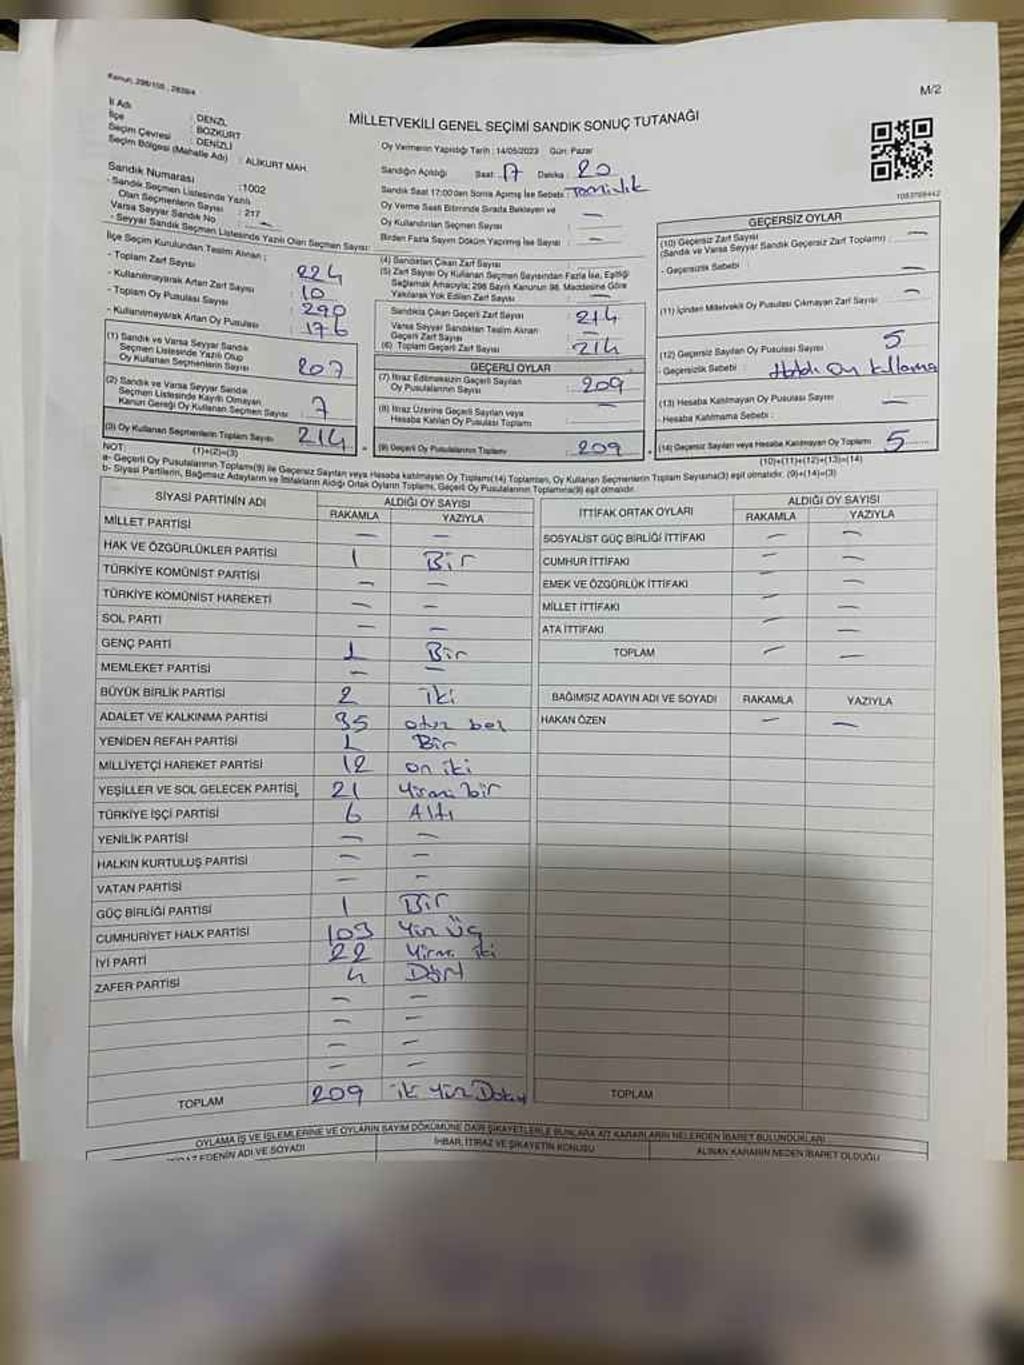 Kanun, 298/105 , 2839/4
M/2
MİLLETVEKİLİ GENEL SEÇİMİ SANDIK SONUÇ TUTANAĞI
İl Adı : DENİZLİ
İlçe : BOZKURT
Seçim Çevresi : DENİZLİ
Seçim Bölgesi (Mahalle Adı) : ALİKURT MAH.
Sandık Numarası :1002
- Sandık Seçmen Listesinde Yazılı
Olan Seçmenlerin Sayısı : 217
Varsa Seyyar Sandık No : —
- Seyyar Sandık Seçmen Listesinde Yazılı Olan Seçmen Sayısı:
İlçe Seçim Kurulundan Teslim Alınan ;
- Toplam Zarf Sayısı : 224
- Kullanılmayarak Artan Zarf Sayısı : 10
- Toplam Oy Pusulası Sayısı : 290
- Kullanılmayarak Artan Oy Pusulası : 176
(1) Sandık ve Varsa Seyyar Sandık
Seçmen Listesinde Yazılı Olup
Oy Kullanan Seçmenlerin Sayısı : 207
(2) Sandık ve Varsa Seyyar Sandık
Seçmen Listesinde Kayıtlı Olmayan,
Kanun Gereği Oy Kullanan Seçmen Sayısı : 7
(3) Oy Kullanan Seçmenlerin Toplam Sayısı : 214
(1)+(2)=(3)
Oy Vermenin Yapıldığı Tarih : 14/05/2023 Gün: Pazar
Sandığın Açıldığı Saat : 17 Dakika : 20
Sandık Saat 17:00'den Sonra Açılmış İse Sebebi :
Oy Verme Saati Bitiminde Sırada Bekleyen ve
Oy Kullandırılan Seçmen Sayısı : —
Birden Fazla Sayım Döküm Yapılmış İse Sayısı : —
(4) Sandıktan Çıkan Zarf Sayısı :
(5) Zarf Sayısı Oy Kullanan Seçmen Sayısından Fazla İse, Eşitliği
Sağlamak Amacıyla; 298 Sayılı Kanunun 98. Maddesine Göre
Yakılarak Yok Edilen Zarf Sayısı : —
Sandıkta Çıkan Geçerli Zarf Sayısı : 214
Varsa Seyyar Sandıktan Teslim Alınan
Geçerli Zarf Sayısı : —
(6) Toplam Geçerli Zarf Sayısı : 214
GEÇERLİ OYLAR
(7) İtiraz Edilmeksizin Geçerli Sayılan
Oy Pusulalarının Sayısı : 209
(8) İtiraz Üzerine Geçerli Sayılan veya
Hesaba Katılan Oy Pusulası Toplamı : —
(9) Geçerli Oy Pusulalarının Toplamı : 209
1053769442
GEÇERSİZ OYLAR
(10) Geçersiz Zarf Sayısı : —
(Sandık ve Varsa Seyyar Sandık Geçersiz Zarf Toplamı)
- Geçersizlik Sebebi : —
(11) İçinden Milletvekili Oy Pusulası Çıkmayan Zarf Sayısı : —
(12) Geçersiz Sayılan Oy Pusulası Sayısı : 5
- Geçersizlik Sebebi : Hatalı Oy kullama
(13) Hesaba Katılmayan Oy Pusulası Sayısı : —
- Hesaba Katılmama Sebebi :
(14) Geçersiz Sayılan veya Hesaba Katılmayan Oy Toplamı : 5
(10)+(11)+(12)+(13)=(14)
NOT:
a- Geçerli Oy Pusulasının Toplamı(9) ile Geçersiz Sayılan veya Hesaba katılmayan Oy Toplamı(14) Toplamları, Oy Kullanan Seçmenlerin Toplam Sayısına(3) eşit olmalıdır. (9)+(14)=(3)
b- Siyasi Partilerin, Bağımsız Adayların ve İttifakların Aldığı Ortak Oyların Toplamı, Geçerli Oy Pusulalarının Toplamına(9) eşit olmalıdır.
SİYASİ PARTİNİN ADI ALDIĞI OY SAYISI
RAKAMLA YAZIYLA
MİLLET PARTİSİ — —
HAK VE ÖZGÜRLÜKLER PARTİSİ 1 Bir
TÜRKİYE KOMÜNİST PARTİSİ — —
TÜRKİYE KOMÜNİST HAREKETİ — —
SOL PARTİ — —
GENÇ PARTİ 1 Bir
MEMLEKET PARTİSİ — —
BÜYÜK BİRLİK PARTİSİ 2 iki
ADALET VE KALKINMA PARTİSİ 35 otuz beş
YENİDEN REFAH PARTİSİ 1 Bir
MİLLİYETÇİ HAREKET PARTİSİ 12 on iki
YEŞİLLER VE SOL GELECEK PARTİSİ 21 Yirmi bir
TÜRKİYE İŞÇİ PARTİSİ 6 Altı
YENİLİK PARTİSİ — —
HALKIN KURTULUŞ PARTİSİ — —
VATAN PARTİSİ — —
GÜÇ BİRLİĞİ PARTİSİ 1 Bir
CUMHURİYET HALK PARTİSİ 103 Yüz Üç
İYİ PARTİ 22 Yirmi iki
ZAFER PARTİSİ 4 Dört
— —
— —
— —
— —
TOPLAM 209 iki Yüz Dokuz
İTTİFAK ORTAK OYLARI ALDIĞI OY SAYISI
RAKAMLA YAZIYLA
SOSYALİST GÜÇ BİRLİĞİ İTTİFAKI — —
CUMHUR İTTİFAKI — —
EMEK VE ÖZGÜRLÜK İTTİFAKI — —
MİLLET İTTİFAKI — —
ATA İTTİFAKI — —
TOPLAM — —
BAĞIMSIZ ADAYIN ADI VE SOYADI RAKAMLA YAZIYLA
HAKAN ÖZEN — —
TOPLAM
OYLAMA İŞ VE İŞLEMLERİNE VE OYLARIN SAYIM DÖKÜMÜNE DAİR ŞİKAYETLERLE BUNLARA AİT KARARLARIN NELERDEN İBARET BULUNDUKLARI
EDENİN ADI VE SOYADI İHBAR, İTİRAZ VE ŞİKAYETİN KONUSU ALINAN KARARIN NEDEN İBARET OLDUĞU